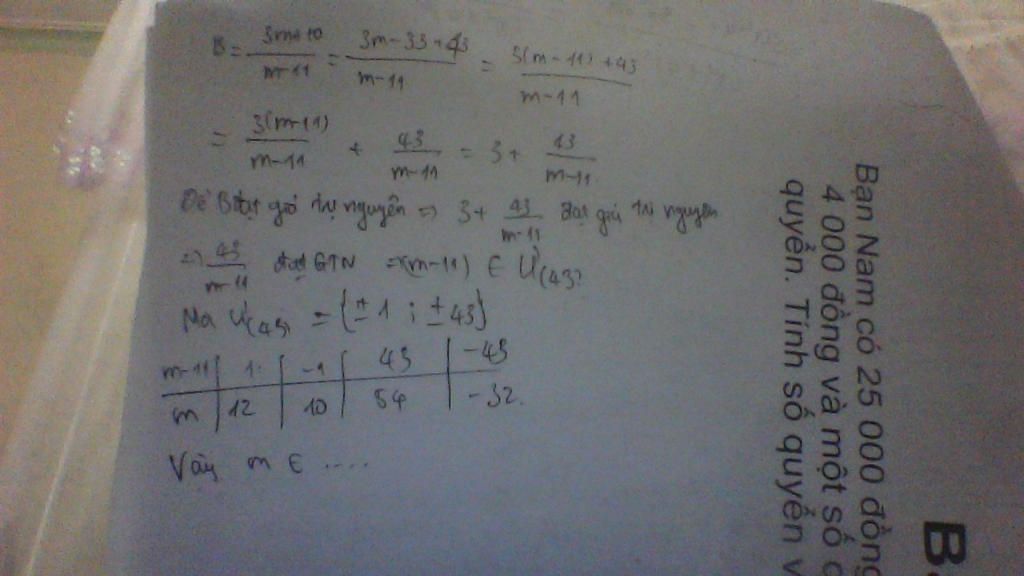 B = \frac{3m+10}{m-11} = \frac{3m-33+43}{m-11} = \frac{3(m-11)+43}{m-11}
= \frac{3(m-11)}{m-11} + \frac{43}{m-11} = 3 + \frac{43}{m-11}
Để B đạt giá trị nguyên => 3 + \frac{43}{m-11} đạt giá trị nguyên
=> \frac{43}{m-11} đạt GTN => (m-11) ∈ Ư(43)
Mà Ư(43) = {±1 ; ±43}
m-11 | 1 | -1 | 43 | -43
m | 12 | 10 | 54 | -32
Vậy m ∈ ....
Bạn Nam có 25 000 đồng
4 000 đồng và một số
quyển. Tính số quyển v
B